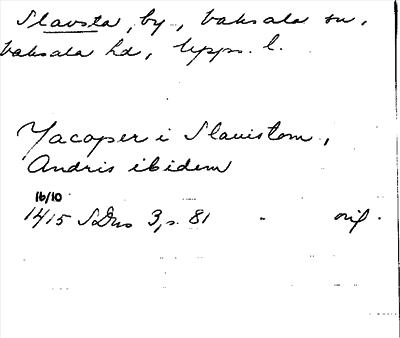 Slavsta, by, Vaksala sn,
Vaksala hd, Upps. l.
Jacoper i Slauistom,
Andris ibidem
16/10
1415 SDns 3, s. 81 " orig.